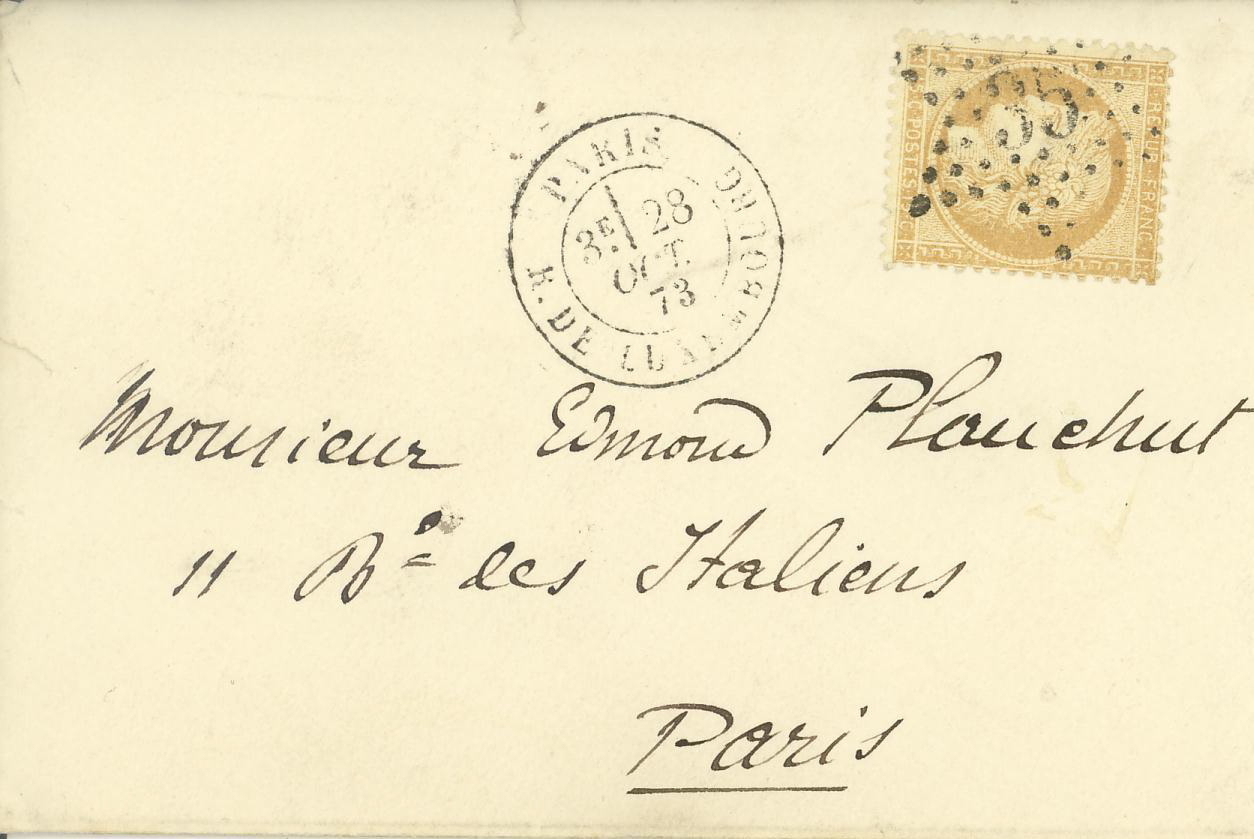 PARIS
R. DE LUXEMBOURG
3E 28
OCT.
73
35
REPUB. FRANC.
POSTES
Monsieur Edmond Plauchut
11 Bd des Italiens
Paris